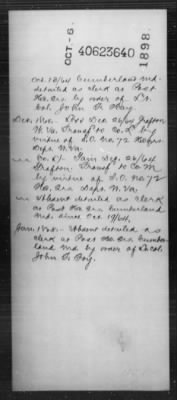 OCT.-6.
40623640
1898
Oct. 18/64 Cumberland Md.
detailed as clerk at Post
Hd. Qrs by order of Lt.
Col. John F. Hoy.
Dec. 26/64 Grafton
W. Va. Transf to Co.
by virtue of S.O. No. 72 Hdqrs.
Dept. W. Va.
Dec. 26/64
Grafton. Transf to Co. M
by virtue of S.O. No. 72
Hd. Qrs Dept. W. Va.
Absent detailed as clerk
at Post Hd. Qrs Cumberland
Md. since Oct. 18/64.
Absent detailed as
clerk at Post Hd. Qrs Cumber-
land Md by order of Lt. Col.
John F. Hoy.